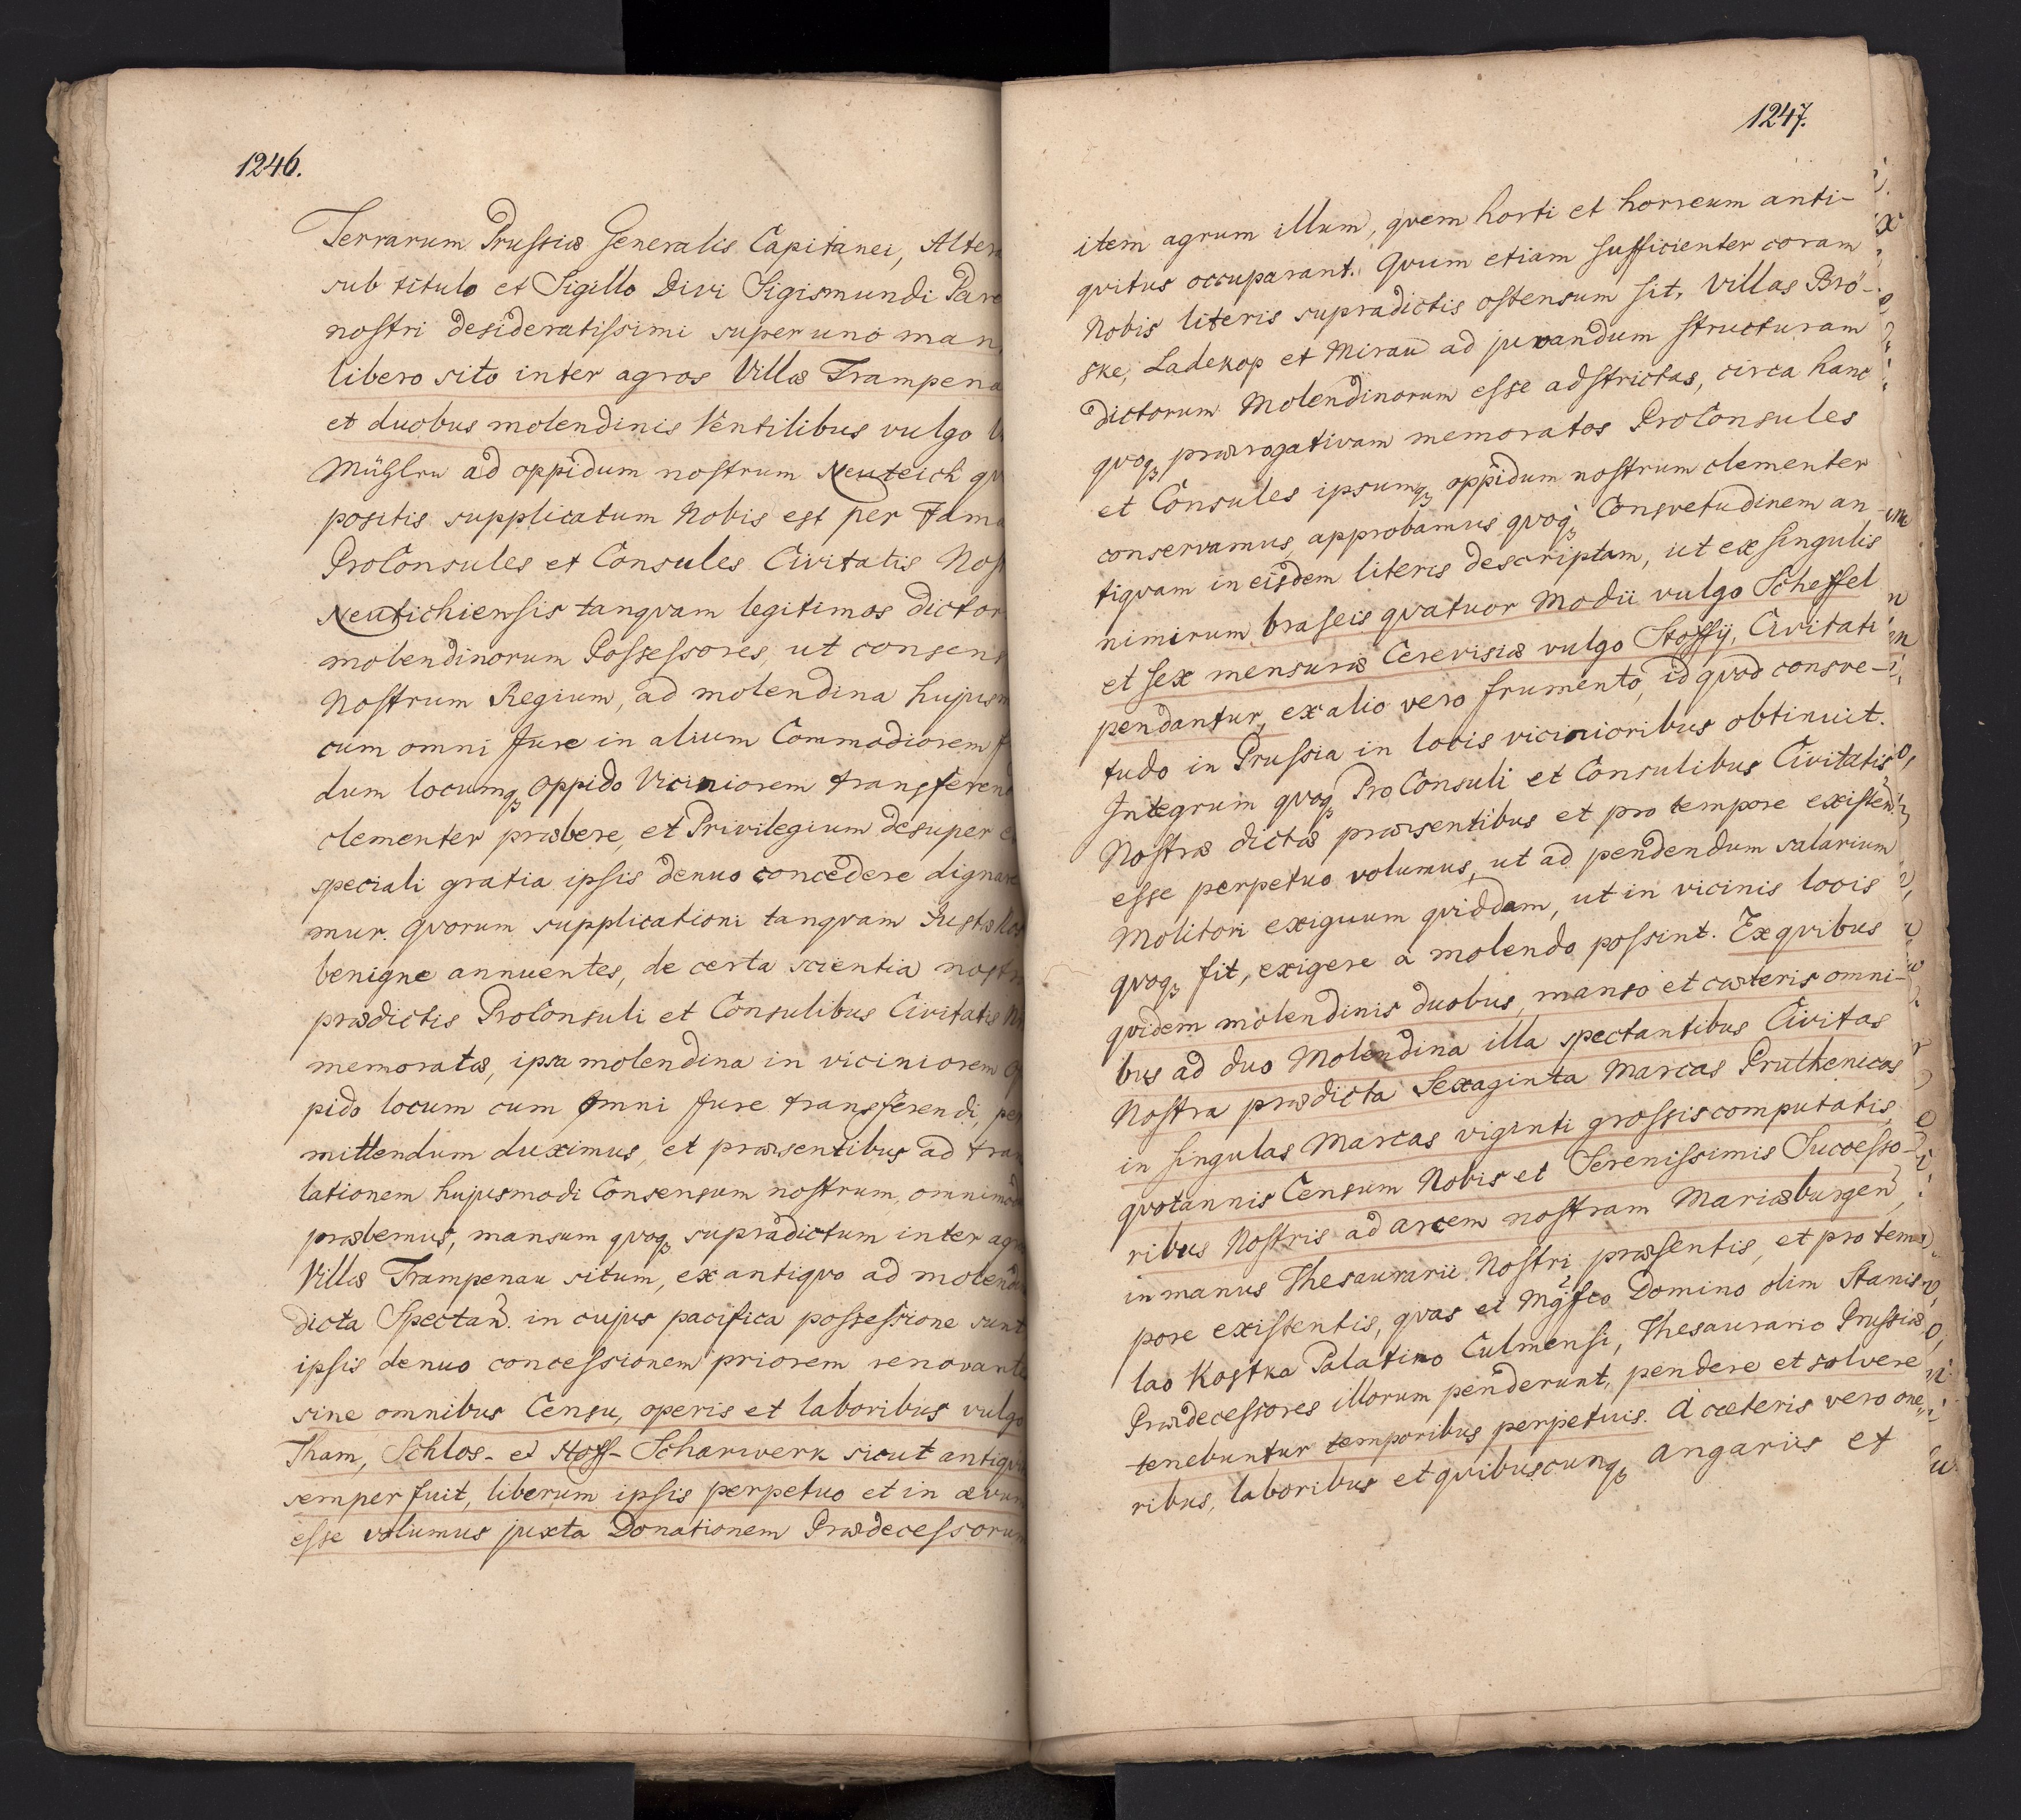 1246.
Terrarum Prussiæ Generalis Capitanei, Alter
sub titulo et Sigillo Divi Sigismundi
nostri desideratissimi super uno
libero sito inter agros Villæ Trampena
et duobus molendinis Ventilibus vulgo
Mühlen ad oppidum nostrum Neuteich
positis supplicatum Nobis est per
ProConsules et Consules Civitatis
Neutichiensis tanqvam legitimos dictor
molendinorum Possessores, ut consens
Nostrum Regium, ad molendina hujusm
cum omni Jure in alium Commodiorem
dum locumqꝫ oppido Viciniorem transferend
clementer præbere, et Privilegium desuper
speciali gratia ipsis denuo concedere dignare
mur. Qvorum supplicationi tanqvam Justæ
benigne annuentes, de certa scientia nostr
prædictis ProConsuli et Consulibus Civitatis
memoratæ, ipsa molendina in viciniorem op
pido locum cum omni Jure transferendi, per
mittendum duximus, et præsentibus ad trans
lationem hujusmodi Consensum nostrum omnimod
præbemus, mansum qvoqꝫ supradictum inter agr
Villæ Trampenau situm, ex antiqvo ad molend
dicta Spectan. in cujus pacifica possessione sunt
ipsis denuo concessionem priorem renovante
sine omnibus Censu, operis et laboribus vulgo
Tham, Schlos- et Hoff-Scharwerk sicut antiqv
semper fuit, liberum ipsis perpetuo et in ævum
esse volumus juxta Donationem Prædecessorum
1247.
item agrum illum, qvem horti et horreum anti-
qvitus occuparant. Qvum etiam sufficienter coram
Nobis literis supradictis ostensum sit, Villas Brö-
ske, Ladekop et Mirau ad juvandum structuram
dictorum Molendinorum esse adstrictas, circa hanc
qvoqꝫ prærogativam memoratos ProConsules
et Consules ipsumqꝫ oppidum nostrum clementer
conservamus, approbamus qvoqꝫ Consvetudinem an-
tiqvam in eisdem literis descriptam, ut ex singulis
nimirum braseis qvatuor Modii vulgo Scheffel
et sex mensuræ Cerevisiæ vulgo Stoffij, Civitati
pendantur, ex alio vero frumento, id qvod consve-
tudo in Prussia in locis vicinioribus obtinuit.
Integrum qvoqꝫ ProConsuli et Consulibus Civitatis
Nostræ dictæ præsentibus et pro tempore existen.
esse perpetuo volumus, ut ad pendendum salarium
Molitori exiguum qviddam, ut in vicinis locis
qvoqꝫ fit, exigere a molendo possint. Ex qvibus
qvidem molendinis duobus, manso et cæteris omni-
bus ad duo Molendina illa spectantibus Civitas
Nostra prædicta Sexaginta Marcas Pruthenicas
in singulas Marcas viginti grossis computatis,
qvotannis Censum Nobis et Serenissimis Successo-
ribus Nostris ad arcem nostram Mariæburgen,
in manus Thesaurarii Nostri præsentis, et pro tem-
pore existentis, qvas et Mgfco Domino olim Stanis-
lao Kostka Palatino Culmensi, Thesaurario Prussiæ
Prædecessores illorum penderunt, pendere et solvere
tenebuntur temporibus perpetuis. A cæteris vero one-
ribus, laboribus et qvibuscunqꝫ angariis et